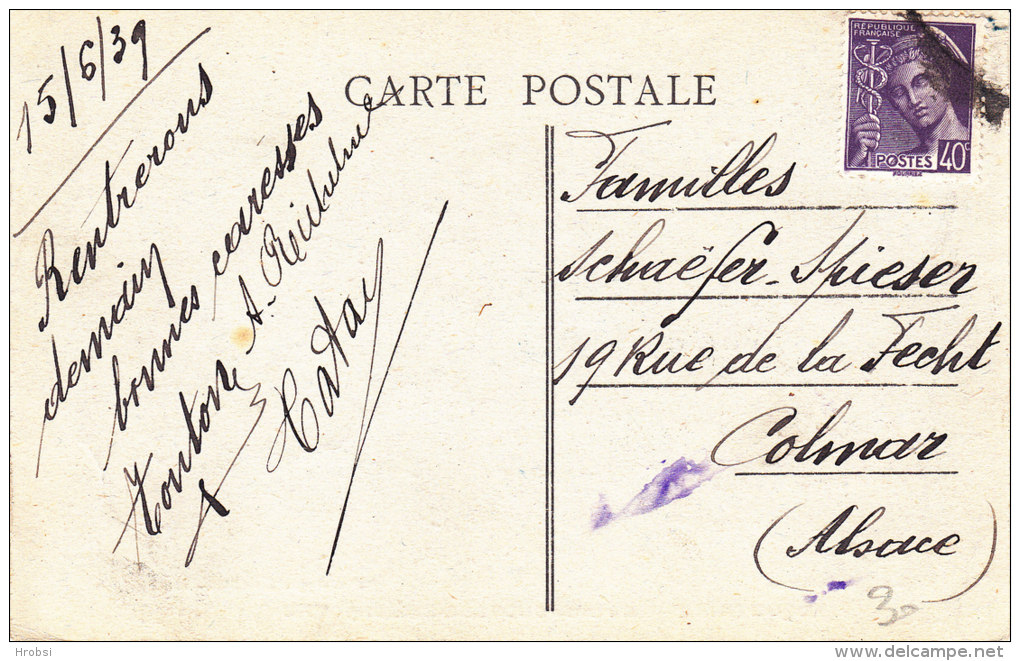 15/6/39
Rentrerons
demain
bonnes caresses
Tonton
CARTE POSTALE
RÉPUBLIQUE
FRANÇAISE
POSTES 40c
Familles
Schaëfer-Spieser
19 Rue de la Fecht
Colmar
(Alsace)
30
Hrobsi
delcampe.net